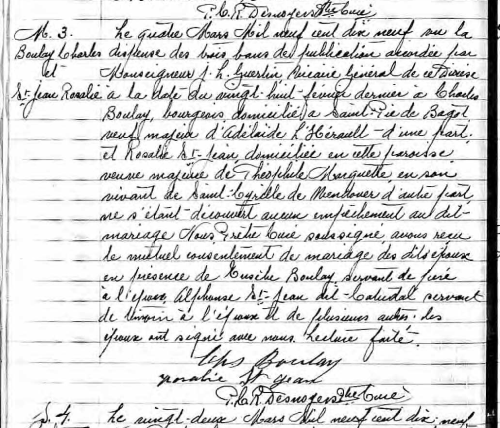 P.C.R. Desnoyers Ptre Curé
M. 3. Le quatre Mars Mil neuf cent dix neuf vu la
Boulay Charles dispense des trois bans de publication accordée par
et Monseigneur J. L. Guertin Vicaire Général de ce Diocèse
St-Jean Rosalie à la date du vingt-huit février dernier à Charles
Boulay, bourgeois, domicilié à Saint-Pie de Bagot
veuf majeur d'Adélaïde L'Hérault d'une part.
et Rosalie St-Jean domiciliée en cette paroisse
veuve majeure de Théophile Marquette en son
vivant de Saint-Cyrille de Wendover d'autre part
ne s'étant découvert aucun empêchement au dit
mariage Nous Prêtre Curé soussigné avons reçu
le mutuel consentement de mariage des dits époux
en présence de Boulay servant de père
à l'époux, Alphonse St-Jean dit servant
de témoin à l'épouse et de plusieurs autres. Les
époux ont signé avec nous. Lecture faite.
Chs Boulay
rosalie St jean
P.C.R. Desnoyers Ptre Curé
4. Le vingt-deux Mars Mil neuf cent dix-neuf